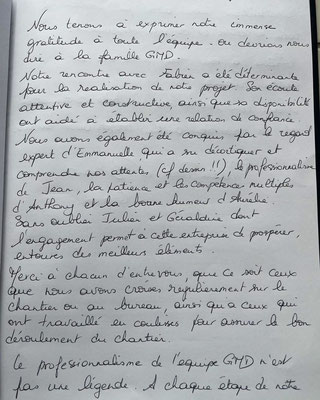 Nous tenons à exprimer notre immense
gratitude à toute l'équipe. ou devrions nous
dire à la famille GMD.
Notre rencontre avec Fabien a été déterminante
pour la réalisation de notre projet. Son écoute
attentive et constructive, ainsi que sa disponibilité
ont aidé à établir une relation de confiance.
Nous avons également été conquis par le regard
expert d'Emmanuelle qui a su décortiquer et
comprendre nos attentes (cf dessin !!), le professionnalisme
de Jean, la patience et les compétences multiples
d'Anthony et la bonne humeur d'Aurélie
Sans oublier Julien et Géraldine dont
l'engagement permet à cette entreprise de prospérer,
entourés des meilleurs éléments.
Merci à chacun d'entre vous, que ce soit ceux
que nous avons croisés régulièrement sur le
chantier ou au bureau, ainsi qu'à ceux qui
ont travaillé en coulisses pour assurer le bon
déroulement du chantier.
Le professionnalisme de l'équipe GMD n'est
pas une légende. A chaque étape de notre